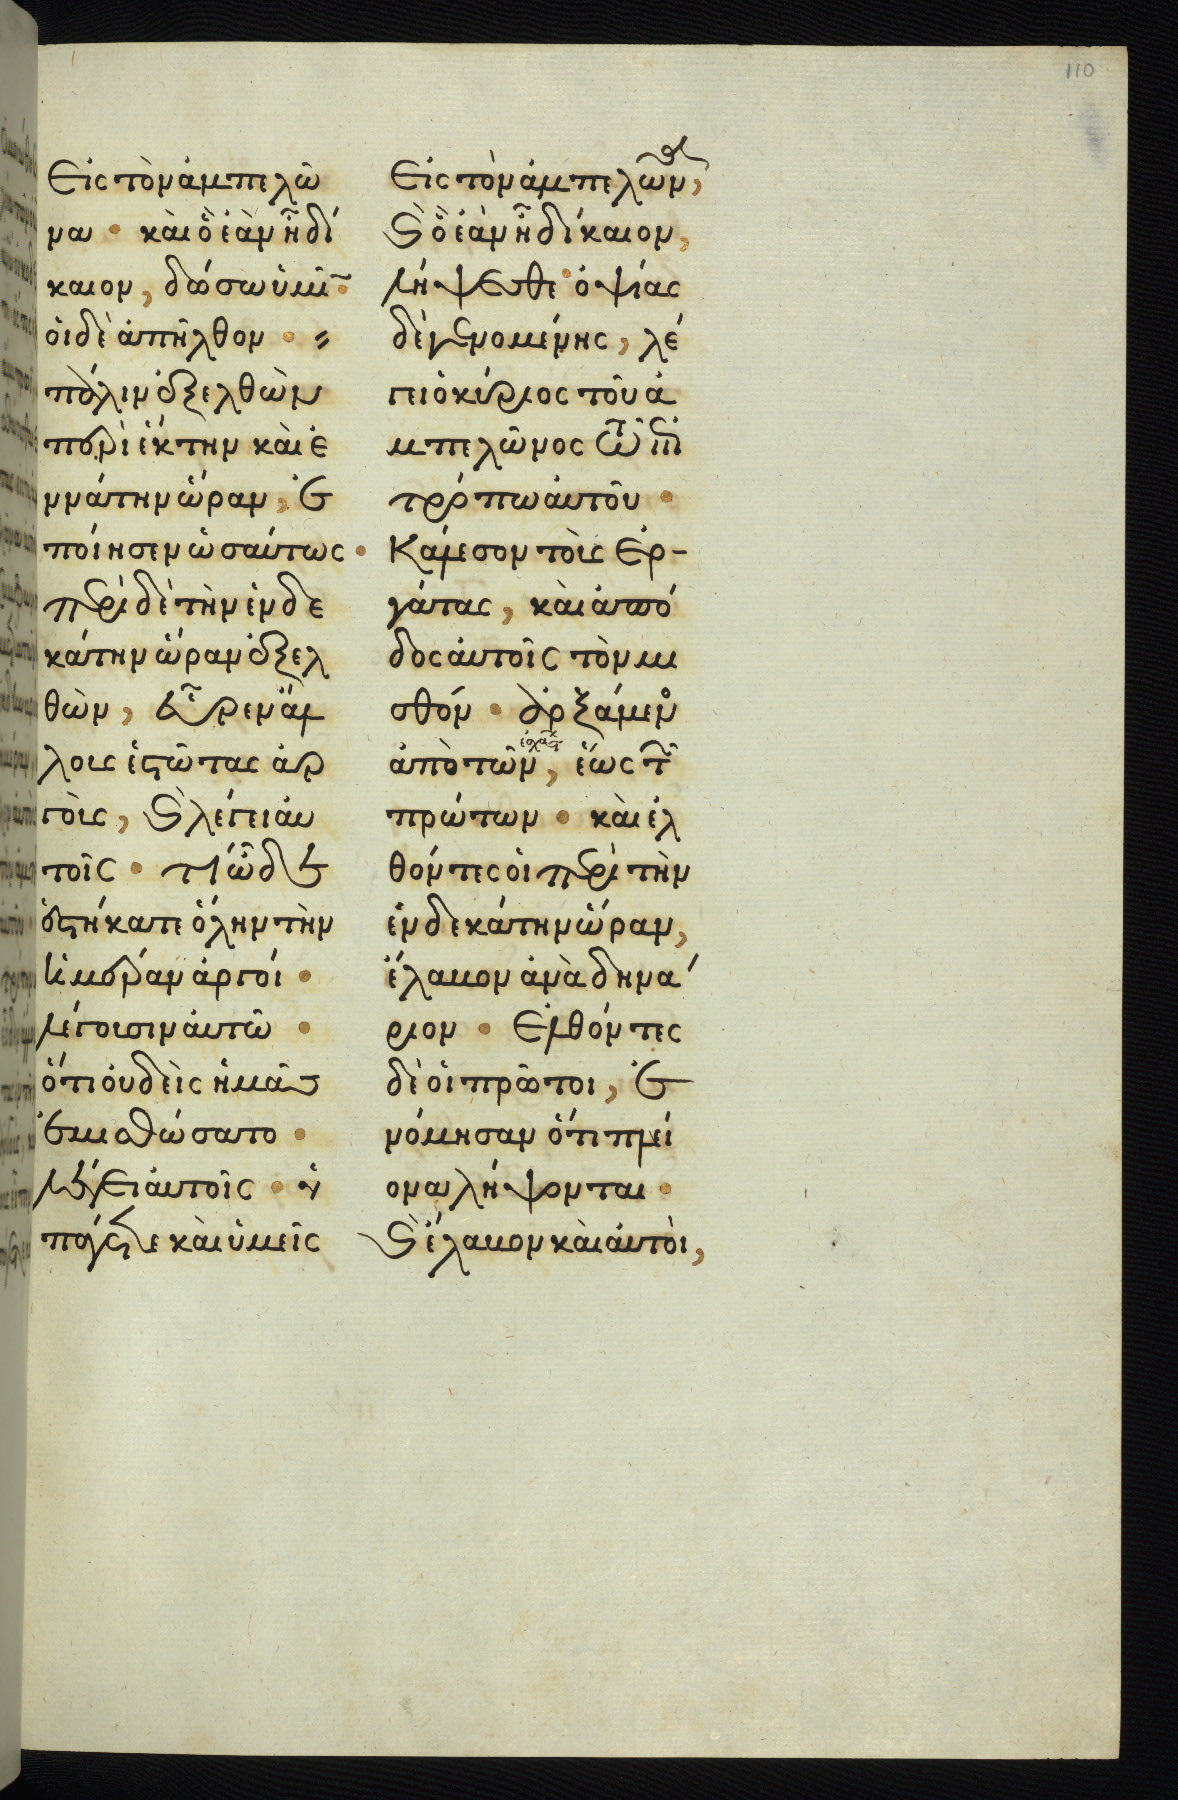 110
Εἰς τὸν ἀμπελῶ
να · καὶ ὃ ἐὰν ἦ δί
καιον, δώσω ὑμῖ ·
οἱ δὲ ἀπῆλθον ·
πάλιν ἐξελθὼν
περὶ ἑκτην καὶ ἐ
ννάτην ὥραν, ἐ
ποίησεν ὡσαύτως ·
περὶ δὲ τὴν ἑνδε
κάτην ὥραν ἐξελ
θὼν, εὗρεν ἄλ
λους ἑστῶτας ἀρ
γοὺς, καὶ λέγει αὐ
τοῖς · τί ὧδε
ἑστήκατε ὅλην τὴν
ἡμέραν ἀργοί ·
λέγουσιν αὐτῶ ·
ὅτι οὐδεὶς ἡμᾶς
ἐμισθώσατο ·
λέγει αὐτοῖς · ὑ
πάγετε καὶ ὑμεῖς
Εἰς τὸν ἀμπελῶν,
καὶ ὃ ἐὰν ἦ δίκαιον,
λήψεσθε · ὀψίας
δὲ γενομένης, λέ
γει ὁ κύριος τοῦ ἀ
μπελῶνος τῶ ἐπι
τρόπω αὐτοῦ ·
Κάλεσον τοὺς ἐρ-
γάτας, καὶ ἀπό
δος αὐτοῖς τὸν μι
σθόν · ἀρξάμενο
ἀπὸ τῶν ἐσχάτ, ἕως τῶ
πρώτων · καὶ ἐλ
θόντες οἱ περὶ τὴν
ἑνδεκάτην ὥραν,
ἔλαβον ἀνὰ δηνά
ριον · Ἐλθόντες
δὲ οἱ πρῶτοι, ἐ
νόμησαν ὅτι πλεί
ονα λήψονται ·
καὶ ἔλαβον καὶ αὐτοὶ,